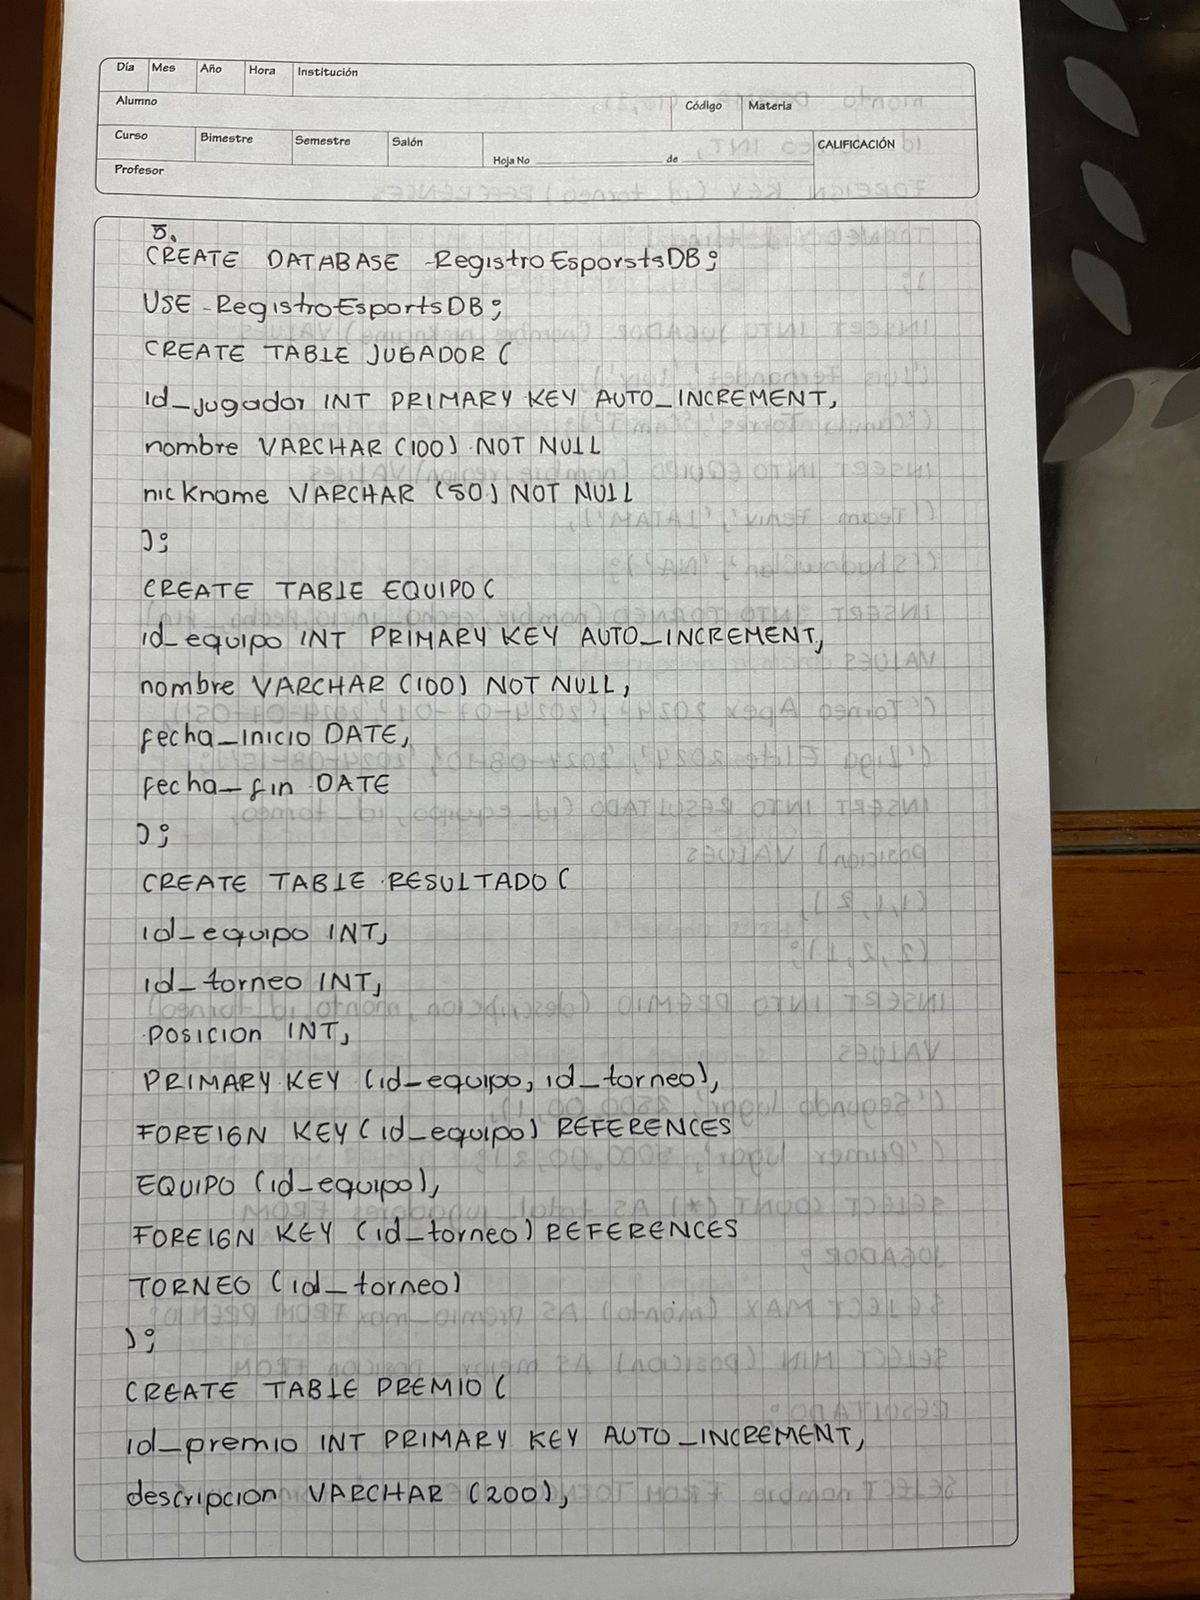 Día Mes Año Hora Institución
Alumno Código Materia
Curso Bimestre Semestre Salón Hoja No de CALIFICACIÓN
Profesor
5.
CREATE DATABASE RegistroEsporstsDB;
USE RegistroEsportsDB;
CREATE TABLE JUGADOR (
id_jugador INT PRIMARY KEY AUTO_INCREMENT,
nombre VARCHAR (100) NOT NULL
nickname VARCHAR (50) NOT NULL
);
CREATE TABLE EQUIPO (
id_equipo INT PRIMARY KEY AUTO_INCREMENT,
nombre VARCHAR (100) NOT NULL,
fecha_inicio DATE,
fecha_fin DATE
);
CREATE TABLE RESULTADO (
id_equipo INT,
id_torneo INT,
posicion INT,
PRIMARY KEY (id_equipo, id_torneo),
FOREIGN KEY (id_equipo) REFERENCES
EQUIPO (id_equipo),
FOREIGN KEY (id_torneo) REFERENCES
TORNEO (id_torneo)
);
CREATE TABLE PREMIO (
id_premio INT PRIMARY KEY AUTO_INCREMENT,
descripcion VARCHAR (200),